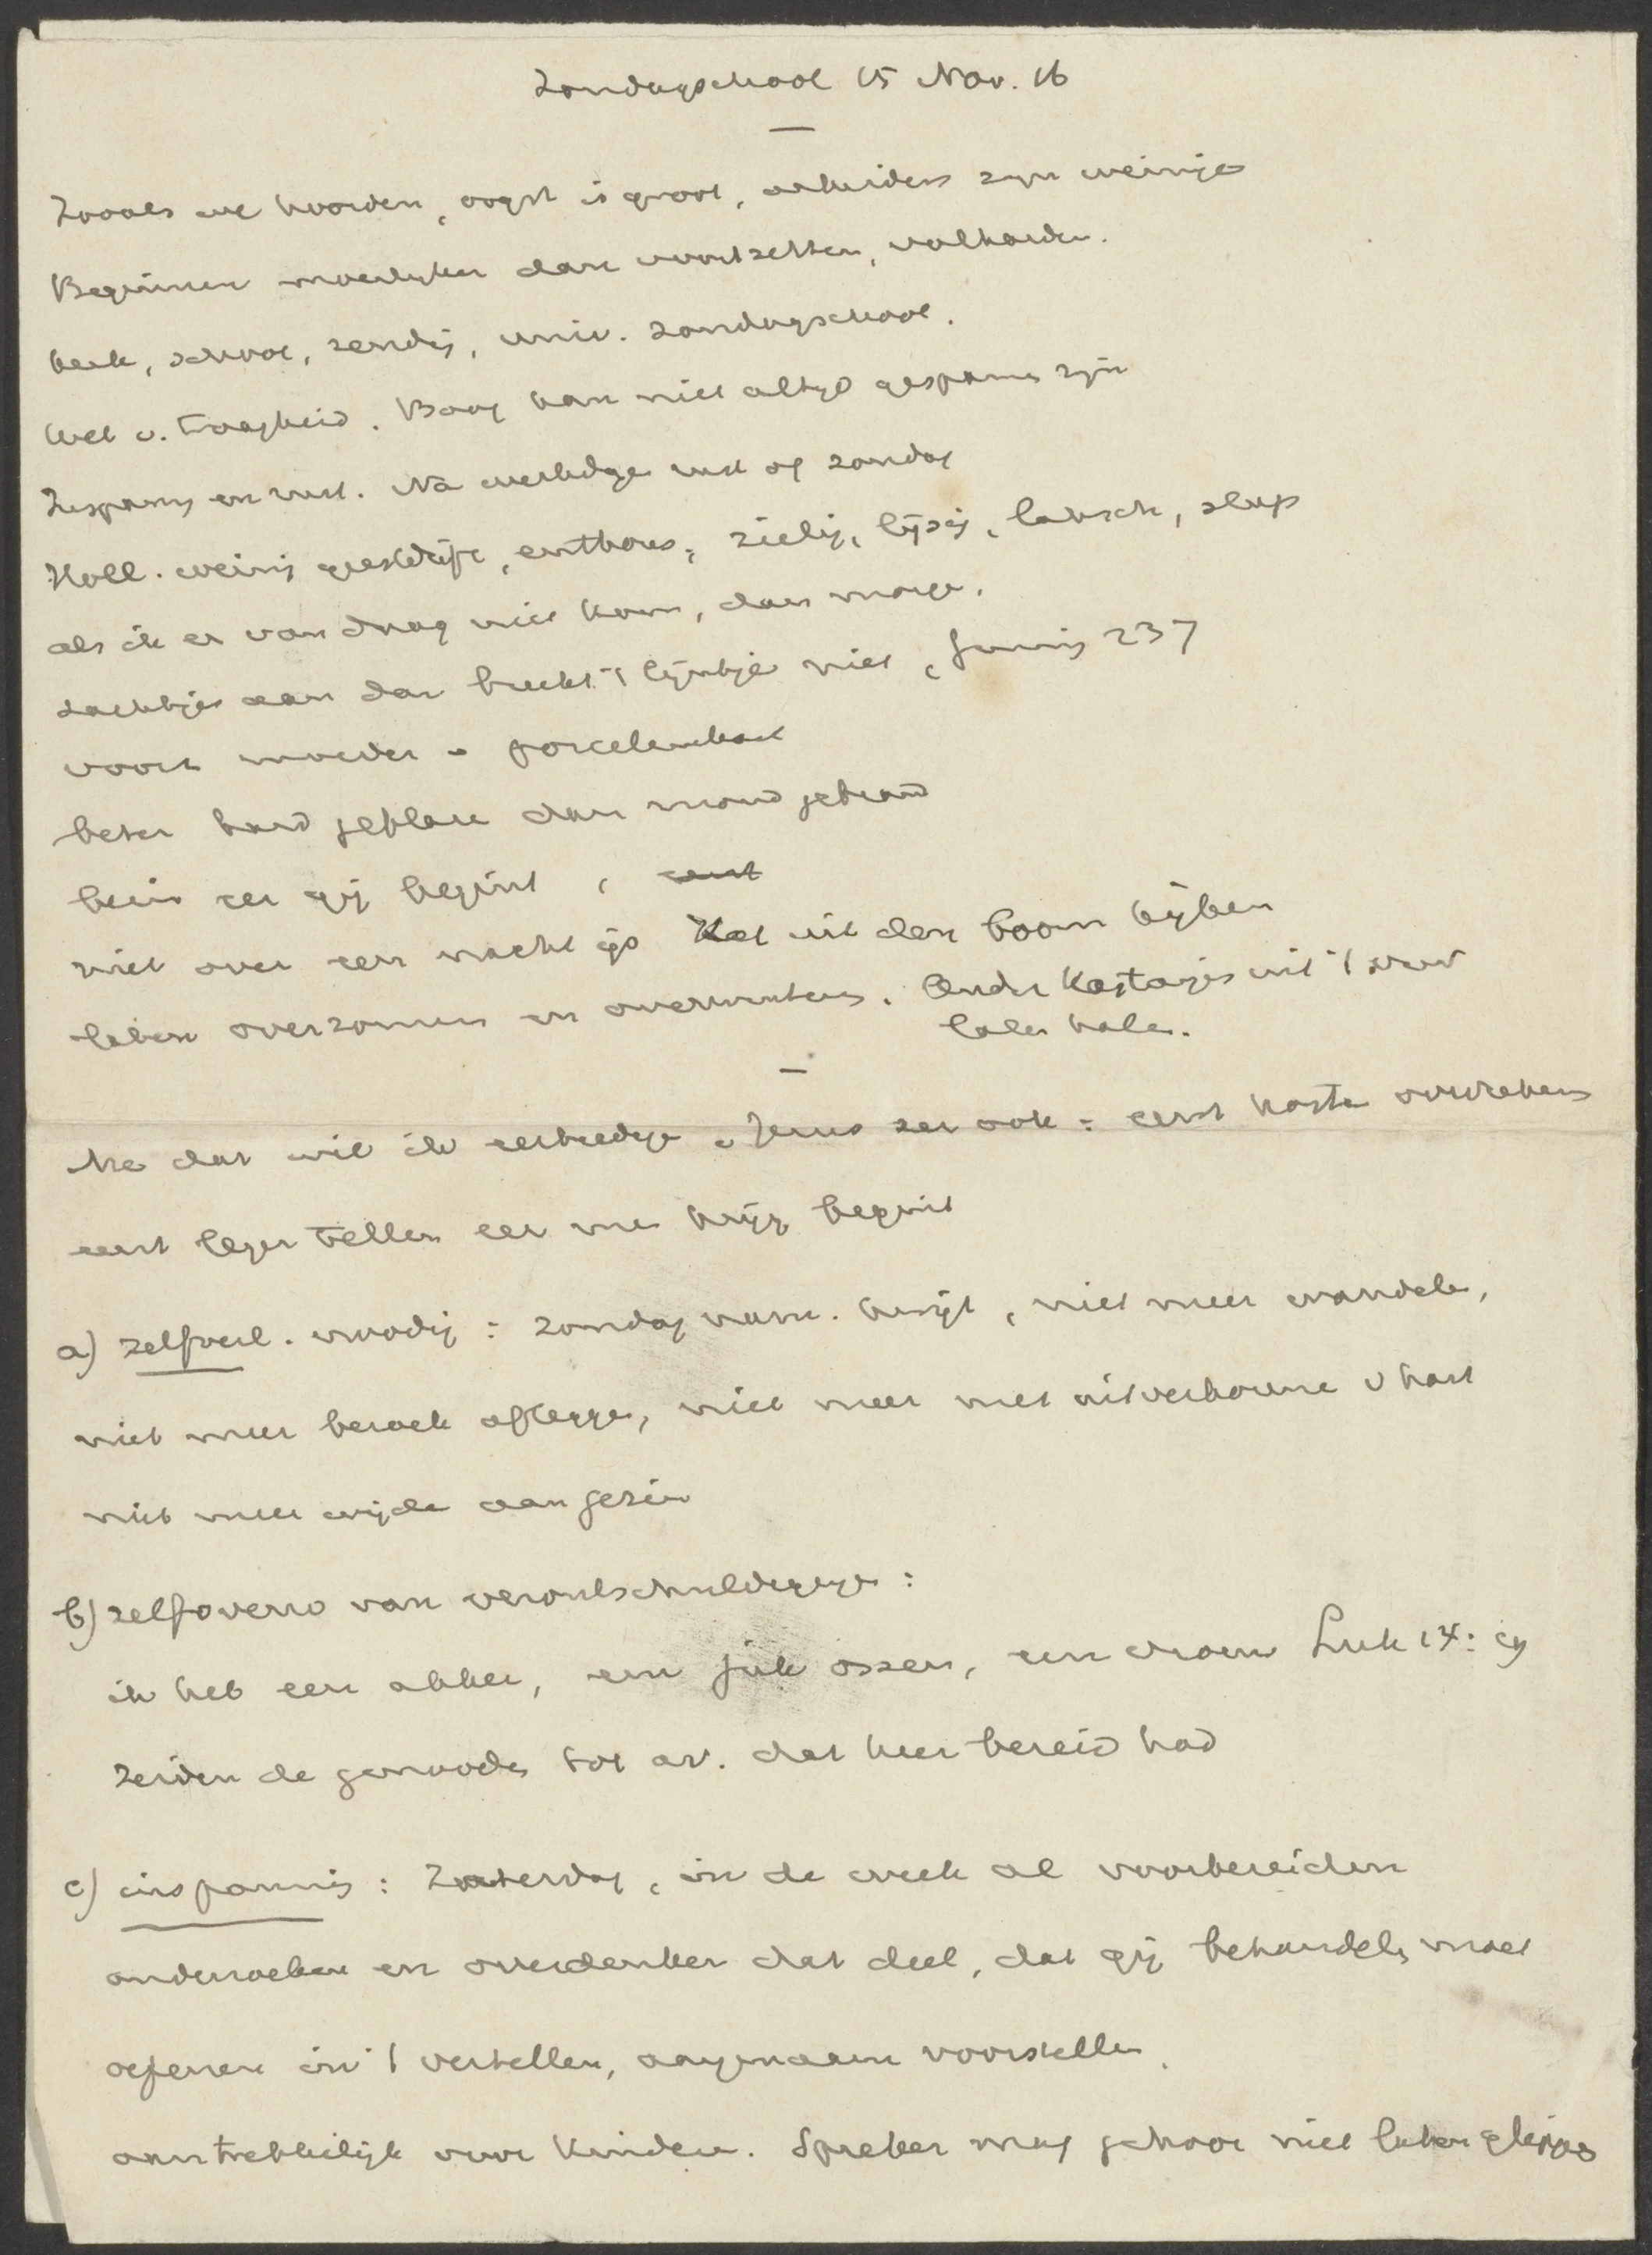 Zondagschool 15 Nov. 16
Zooals we hoorden, oogst is groot, arbeiders zyn weinige
Beginnen moeilyker dan voortzetten, volharden.
kerk, school, zendig, univ. zondagschool.
Wet v. traagheid. Boog kan niet altyd gespannen zijn
Inspanng en rust. Na werkdage rust op zondag
Holl. weinig geestdrift, enthous., zielig, lijzig, laksch, slap
als ik er van daag niet kom, dan morge.
zachtjes aan dan breekt 't lijntje niet,
voorz moeder porceleinkast
beter hard geblaze dan mond gebrand
bezin eer gij begint,
niet over een nacht ijs Kat uit den boom kijken
laten overzomeren en overwinteren. Ander Kastanjes uit 't vuur
laten halen.
Nu dat wil ik eerbiedige. Jezus zei ook: eerst koste overrekenen
eerst leger tellen eer men krijg begint
a) zelfverl. noodig: zondag nam. kwijt, niet meer wandele,
niet meer bezoek aflegge, niet meer met uitverkorene v hart
niet meer wijde aan gezin
b) zelfoverw van verontschuldiginge:
ik heb een akker, een juk ossen, een vrouw Luk 14:
zeiden de genoode tot av. dat heer bereid had
c) inspanning: Zaterdag, in de week al voorbereiden
onderzoeken en overdenken dat deel, dat gij behandele moet
oefenen in 't vertellen, aangenaam voorstellen,
aantrekkelijk voor kinderen. Spreker mag gehoor niet laten glippe